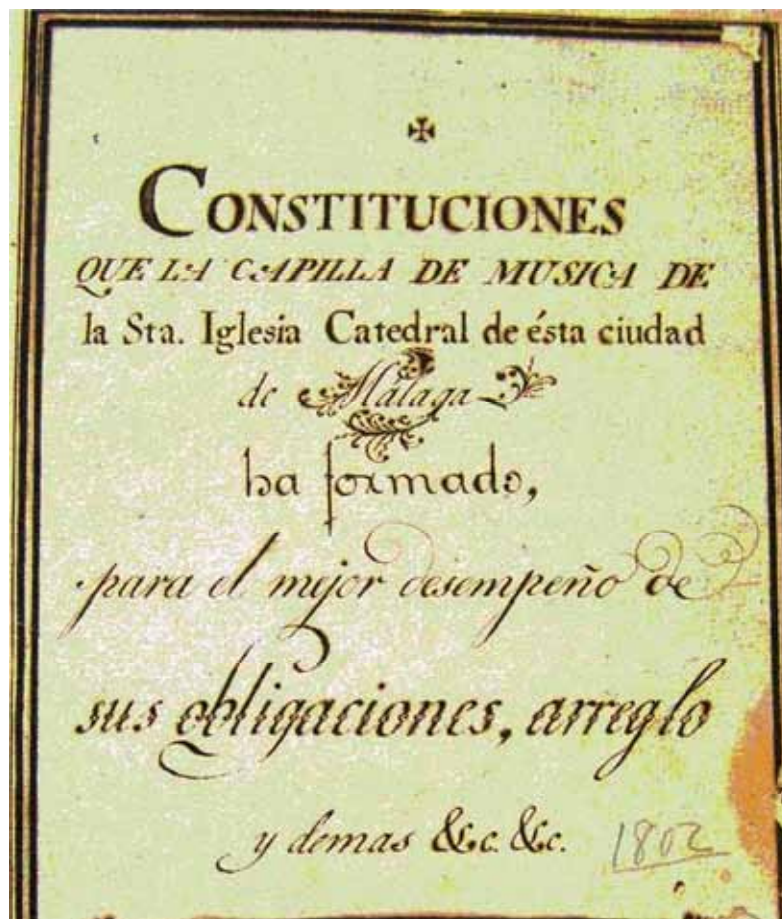 CONSTITUCIONES
QUE LA CAPILLA DE MUSICA DE
la Sta. Iglesia Catedral de ésta ciudad
de Málaga
ha formado,
para el mejor desempeño de
sus obligaciones, arreglo
y demas &c. &c.
1802